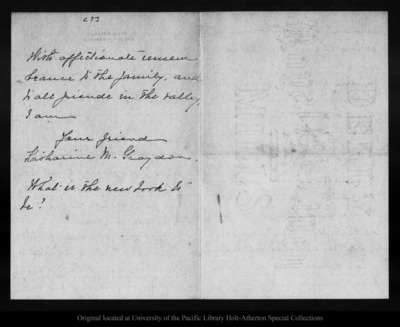 With affectionate remem
brance to the family, and
to all friends in the valley,
I am
Your friend
Katharine M. Graydon.
What is the new book to
be?
Original located at University of the Pacific Library Holt-Atherton Special Collections